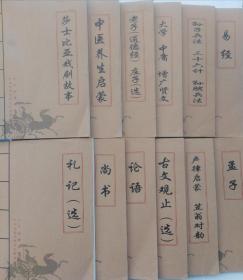 莎士比亚戏剧故事
中医养生启蒙
老子（道德经）庄子（选）
大学 中庸 增广贤文
孙子兵法 三十六计 孙膑兵法
易经
礼记（选）
尚书
论语
古文观止（选）
声律启蒙 笠翁对韵
孟子